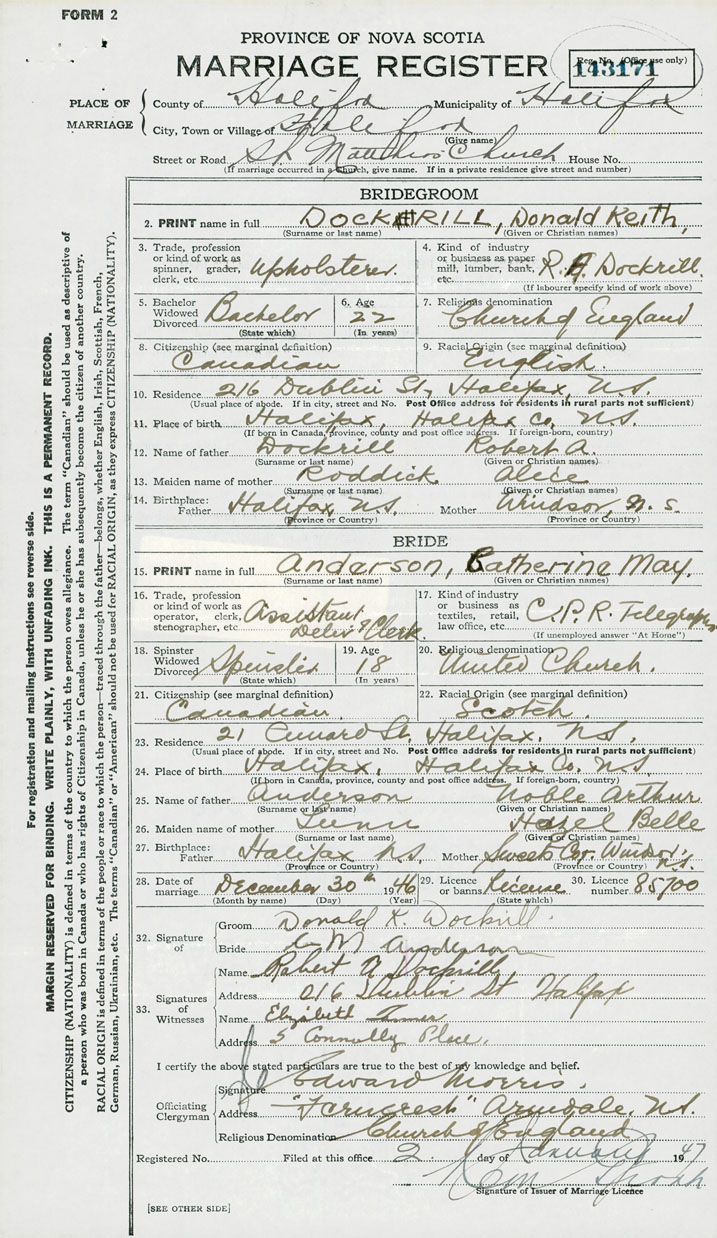 FORM 2
PROVINCE OF NOVA SCOTIA
MARRIAGE REGISTER
Reg. No. (Office use only)
143171
PLACE OF MARRIAGE
County of Halifax Municipality of Halifax
City, Town or Village of Halifax
(Give name)
Street or Road St. Matthias Church House No.
(If marriage occurred in a church, give name. If in a private residence give street and number)
BRIDEGROOM
2. PRINT name in full DOCKRILL, Donald Keith,
(Surname or last name) (Given or Christian names)
3. Trade, profession or kind of work as spinner, grader, clerk, etc. Upholsterer.
4. Kind of industry or business as paper mill, lumber, bank, etc. R. A. Dockrill.
(If labourer specify kind of work above)
5. Bachelor Widowed Divorced Bachelor
(State which)
6. Age 22
(In years)
7. Religious denomination Church of England
8. Citizenship (see marginal definition) Canadian
9. Racial Origin (see marginal definition) English.
10. Residence 216 Dublin St, Halifax, N.S.
(Usual place of abode. If in city, street and No. Post Office address for residents in rural parts not sufficient)
11. Place of birth Halifax, Halifax Co. N.S.
(If born in Canada, province, county and post office address. If foreign-born, country)
12. Name of father Dockrill Robert A.
(Surname or last name) (Given or Christian names)
13. Maiden name of mother Roddick Alice
(Surname or last name) (Given or Christian names)
14. Birthplace: Father Halifax N.S. Mother Windsor, N.S.
(Province or Country) (Province or Country)
BRIDE
15. PRINT name in full Anderson, Catherine May.
(Surname or last name) (Given or Christian names)
16. Trade, profession or kind of work as operator, clerk, stenographer, etc. Assistant Deliv'g Clerk
17. Kind of industry or business as textiles, retail, law office, etc. C.P.R. Telegraph
(If unemployed answer "At Home")
18. Spinster Widowed Divorced Spinster
(State which)
19. Age 18
(In years)
20. Religious denomination United Church.
21. Citizenship (see marginal definition) Canadian.
22. Racial Origin (see marginal definition) Scotch.
23. Residence 21 Cunard St. Halifax, N.S.
(Usual place of abode. If in city, street and No. Post Office address for residents in rural parts not sufficient)
24. Place of birth Halifax, Halifax Co. N.S.
(If born in Canada, province, county and post office address. If foreign-born, country)
25. Name of father Anderson Noble Arthur
(Surname or last name) (Given or Christian names)
26. Maiden name of mother Hazel Belle
(Surname or last name) (Given or Christian names)
27. Birthplace: Father Halifax N.S. Mother Sweets Cor. Windsor, N.S.
(Province or Country) (Province or Country)
28. Date of marriage December 30th 1946
(Month by name) (Day) (Year)
29. Licence or banns License
(State which)
30. Licence number 85700
32. Signature of
Groom Donald K Dockrill.
Bride C M Anderson
33. Signatures of Witnesses
Name Robert A Dockrill
Address 216 Dublin St Halifax
Name Elizabeth
Address 5 Connolly Place.
I certify the above stated particulars are true to the best of my knowledge and belief.
Officiating Clergyman
Signature Edward Morris.
Address "Ferncrest" Armdale, N.S.
Religious Denomination Church of England
Registered No. Filed at this office 2 day of January 1947
Signature of Issuer of Marriage Licence
[SEE OTHER SIDE]
For registration and mailing instructions see reverse side.
MARGIN RESERVED FOR BINDING. WRITE PLAINLY, WITH UNFADING INK. THIS IS A PERMANENT RECORD.
CITIZENSHIP (NATIONALITY) is defined in terms of the country to which the person owes allegiance. The term "Canadian" should be used as descriptive of
a person who was born in Canada or who has rights of Citizenship in Canada, unless he or she has subsequently become the citizen of another country.
RACIAL ORIGIN is defined in terms of the people or race to which the person—traced through the father—belongs, whether English, Irish, Scottish, French,
German, Russian, Ukrainian, etc. The terms "Canadian" or "American" should not be used for RACIAL ORIGIN, as they express CITIZENSHIP (NATIONALITY).